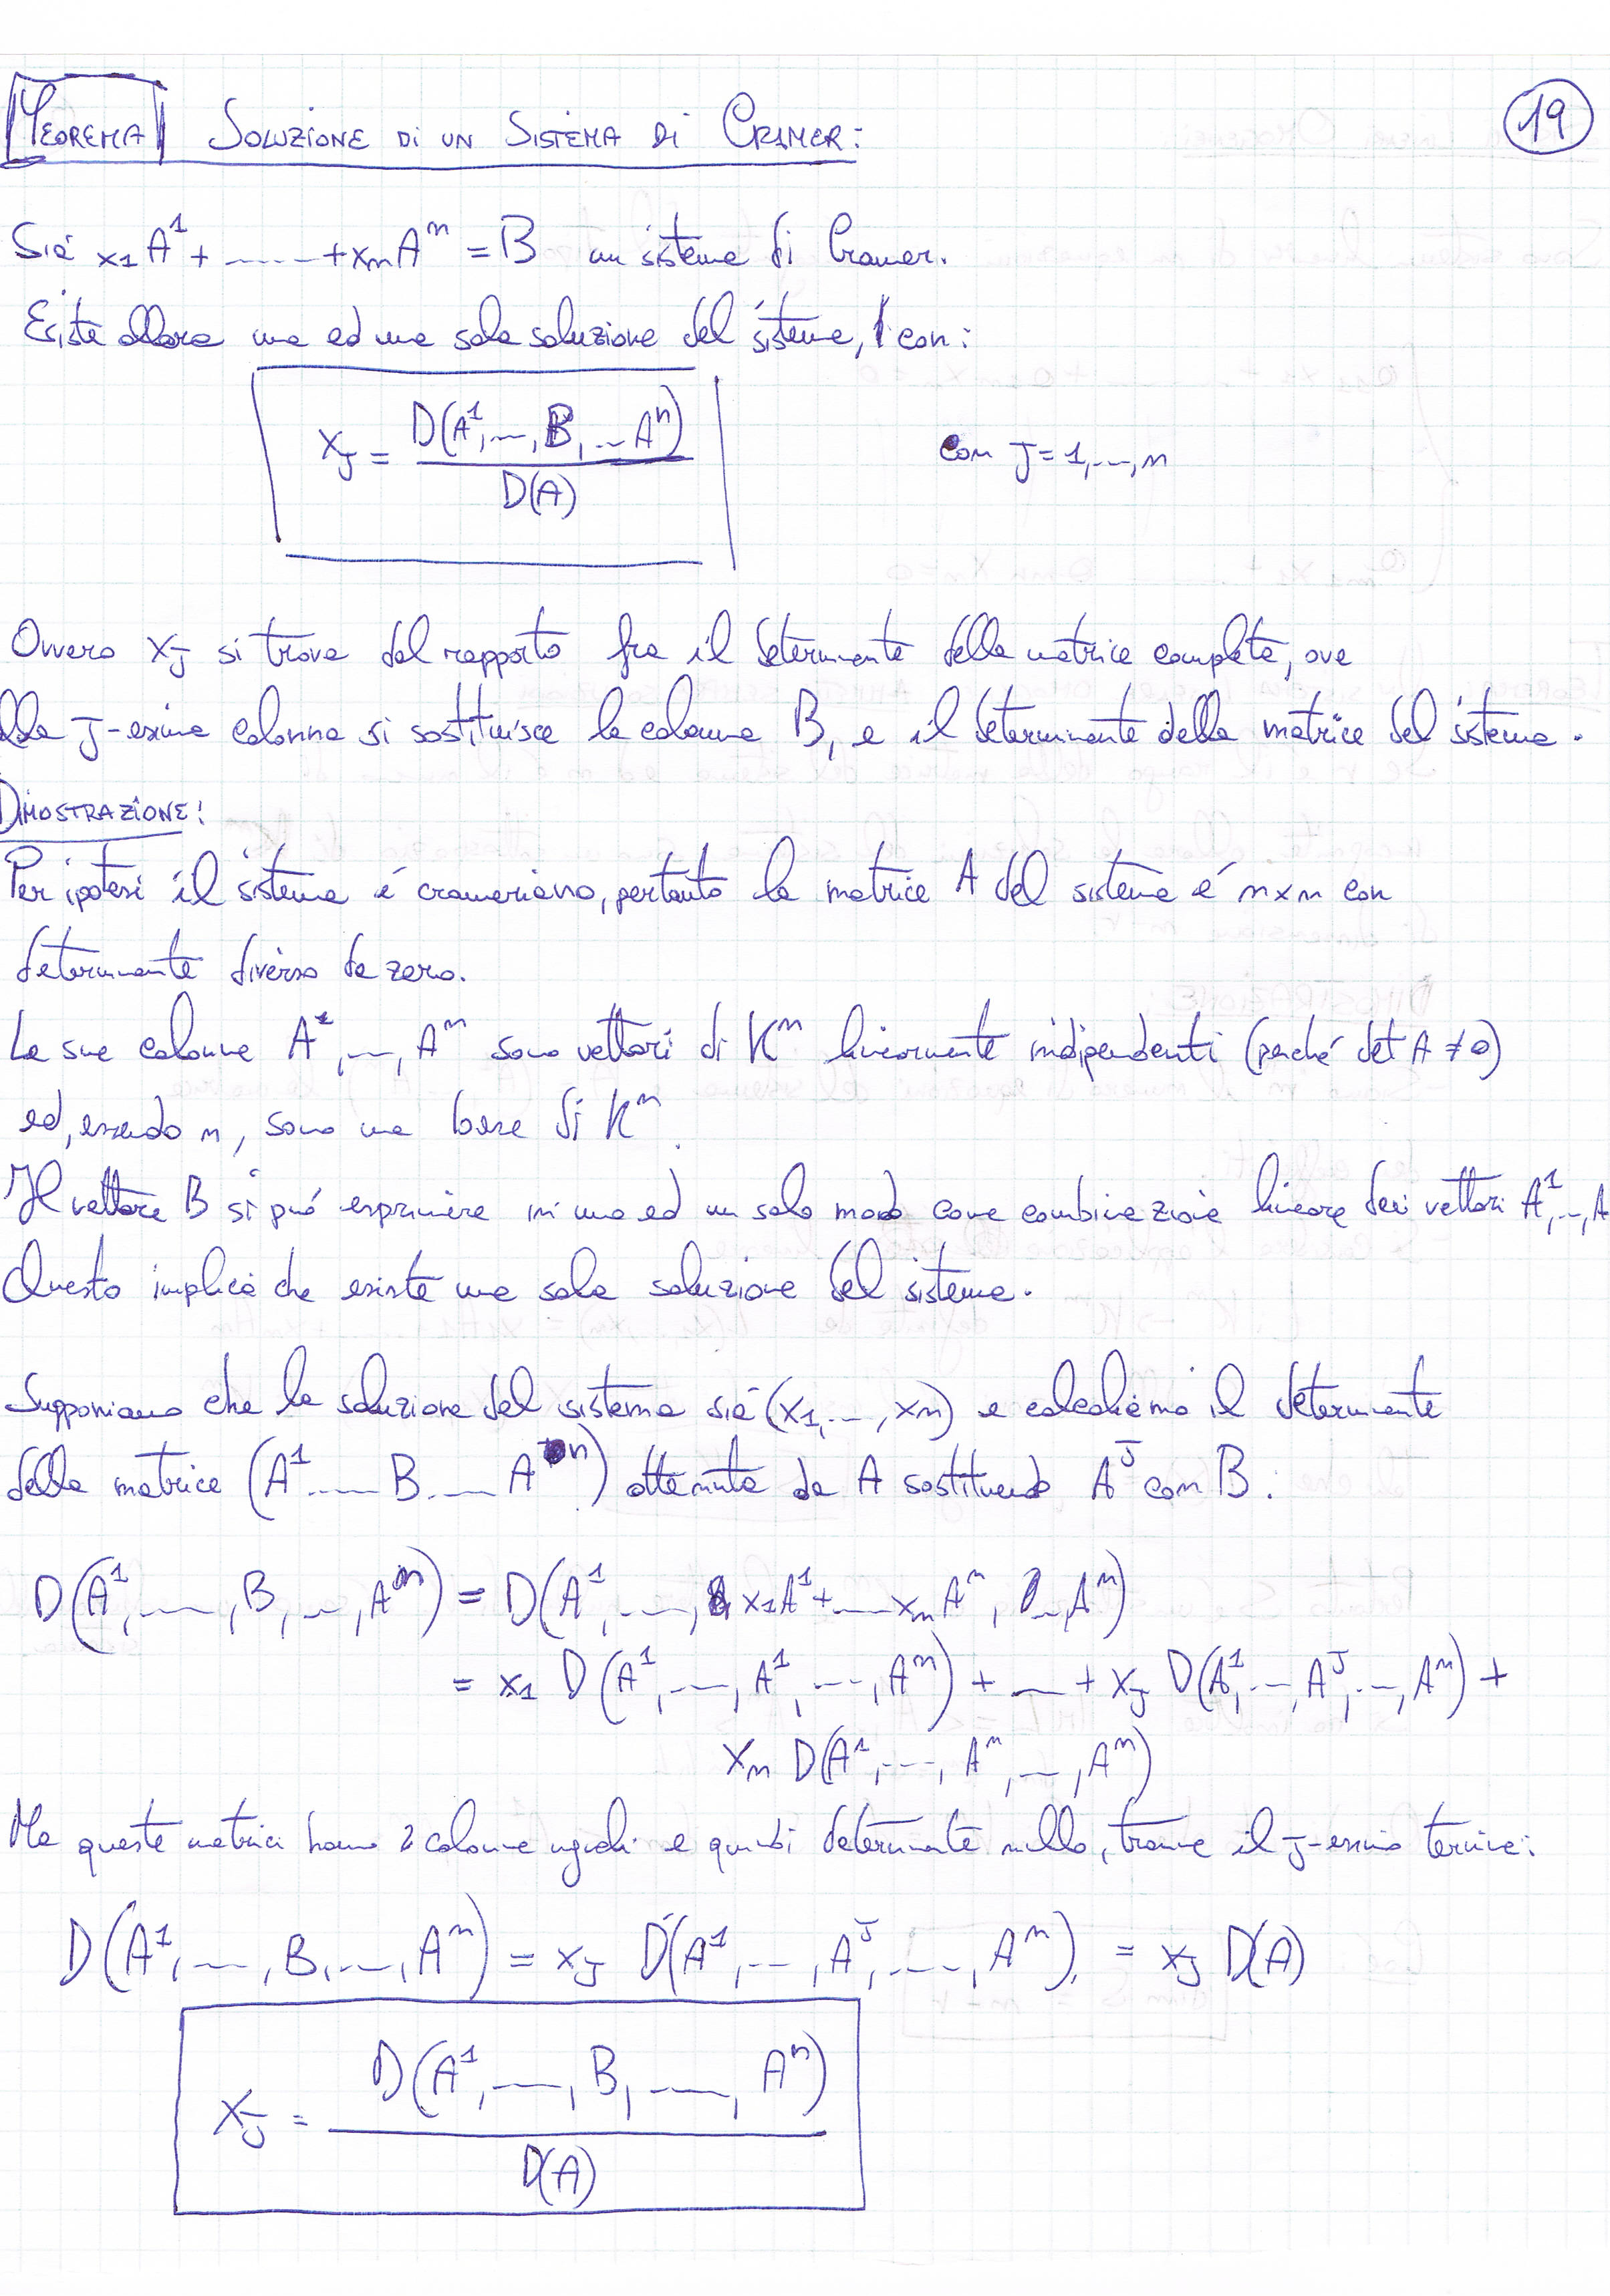 TEOREMA SOLUZIONE DI UN SISTEMA DI CRAMER:
19
Sia x1 A^1 + ...... + xn A^n = B un sistema di Cramer.
Esiste allora una ed una sola soluzione del sistema, con:
xJ = D(A^1, ..., B, ... A^n) / D(A)
con J = 1, ..., n
Ovvero xJ si trova dal rapporto fra il determinante della matrice completa, ove
alla J-esima colonna si sostituisce la colonna B, e il determinante della matrice del sistema.
DIMOSTRAZIONE:
Per ipotesi il sistema é crameriano, pertanto la matrice A del sistema é n×n con
determinante diverso da zero.
Le sue colonne A^1, ..., A^n sono vettori di K^n linearmente indipendenti (perché det A ≠ 0)
ed, essendo n, sono una base di K^n.
Il vettore B si puó esprimere in uno ed un solo modo come combinazione lineare dei vettori A^1, ..., A
Questo implica che esiste una sola soluzione del sistema.
Supponiamo che la soluzione del sistema sia (x1, ..., xn) e calcoliamo il determinante
della matrice (A^1 .... B .... A^n) ottenuta da A sostituendo A^J con B.
D(A^1, ...., B, ..., A^n) = D(A^1, ...., x1 A^1 + .... xn A^n, ..., A^n)
= x1 D(A^1, ...., A^1, ...., A^n) + ... + xJ D(A^1, ..., A^J, ..., A^n) +
xn D(A^1, ...., A^n, ..., A^n)
Ma queste matrici hanno 2 colonne uguali e quindi determinante nullo, tranne il J-esimo termine:
D(A^1, ..., B, ..., A^n) = xJ D(A^1, ..., A^J, ...., A^n) = xJ D(A)
xJ = D(A^1, ...., B, ...., A^n) / D(A)